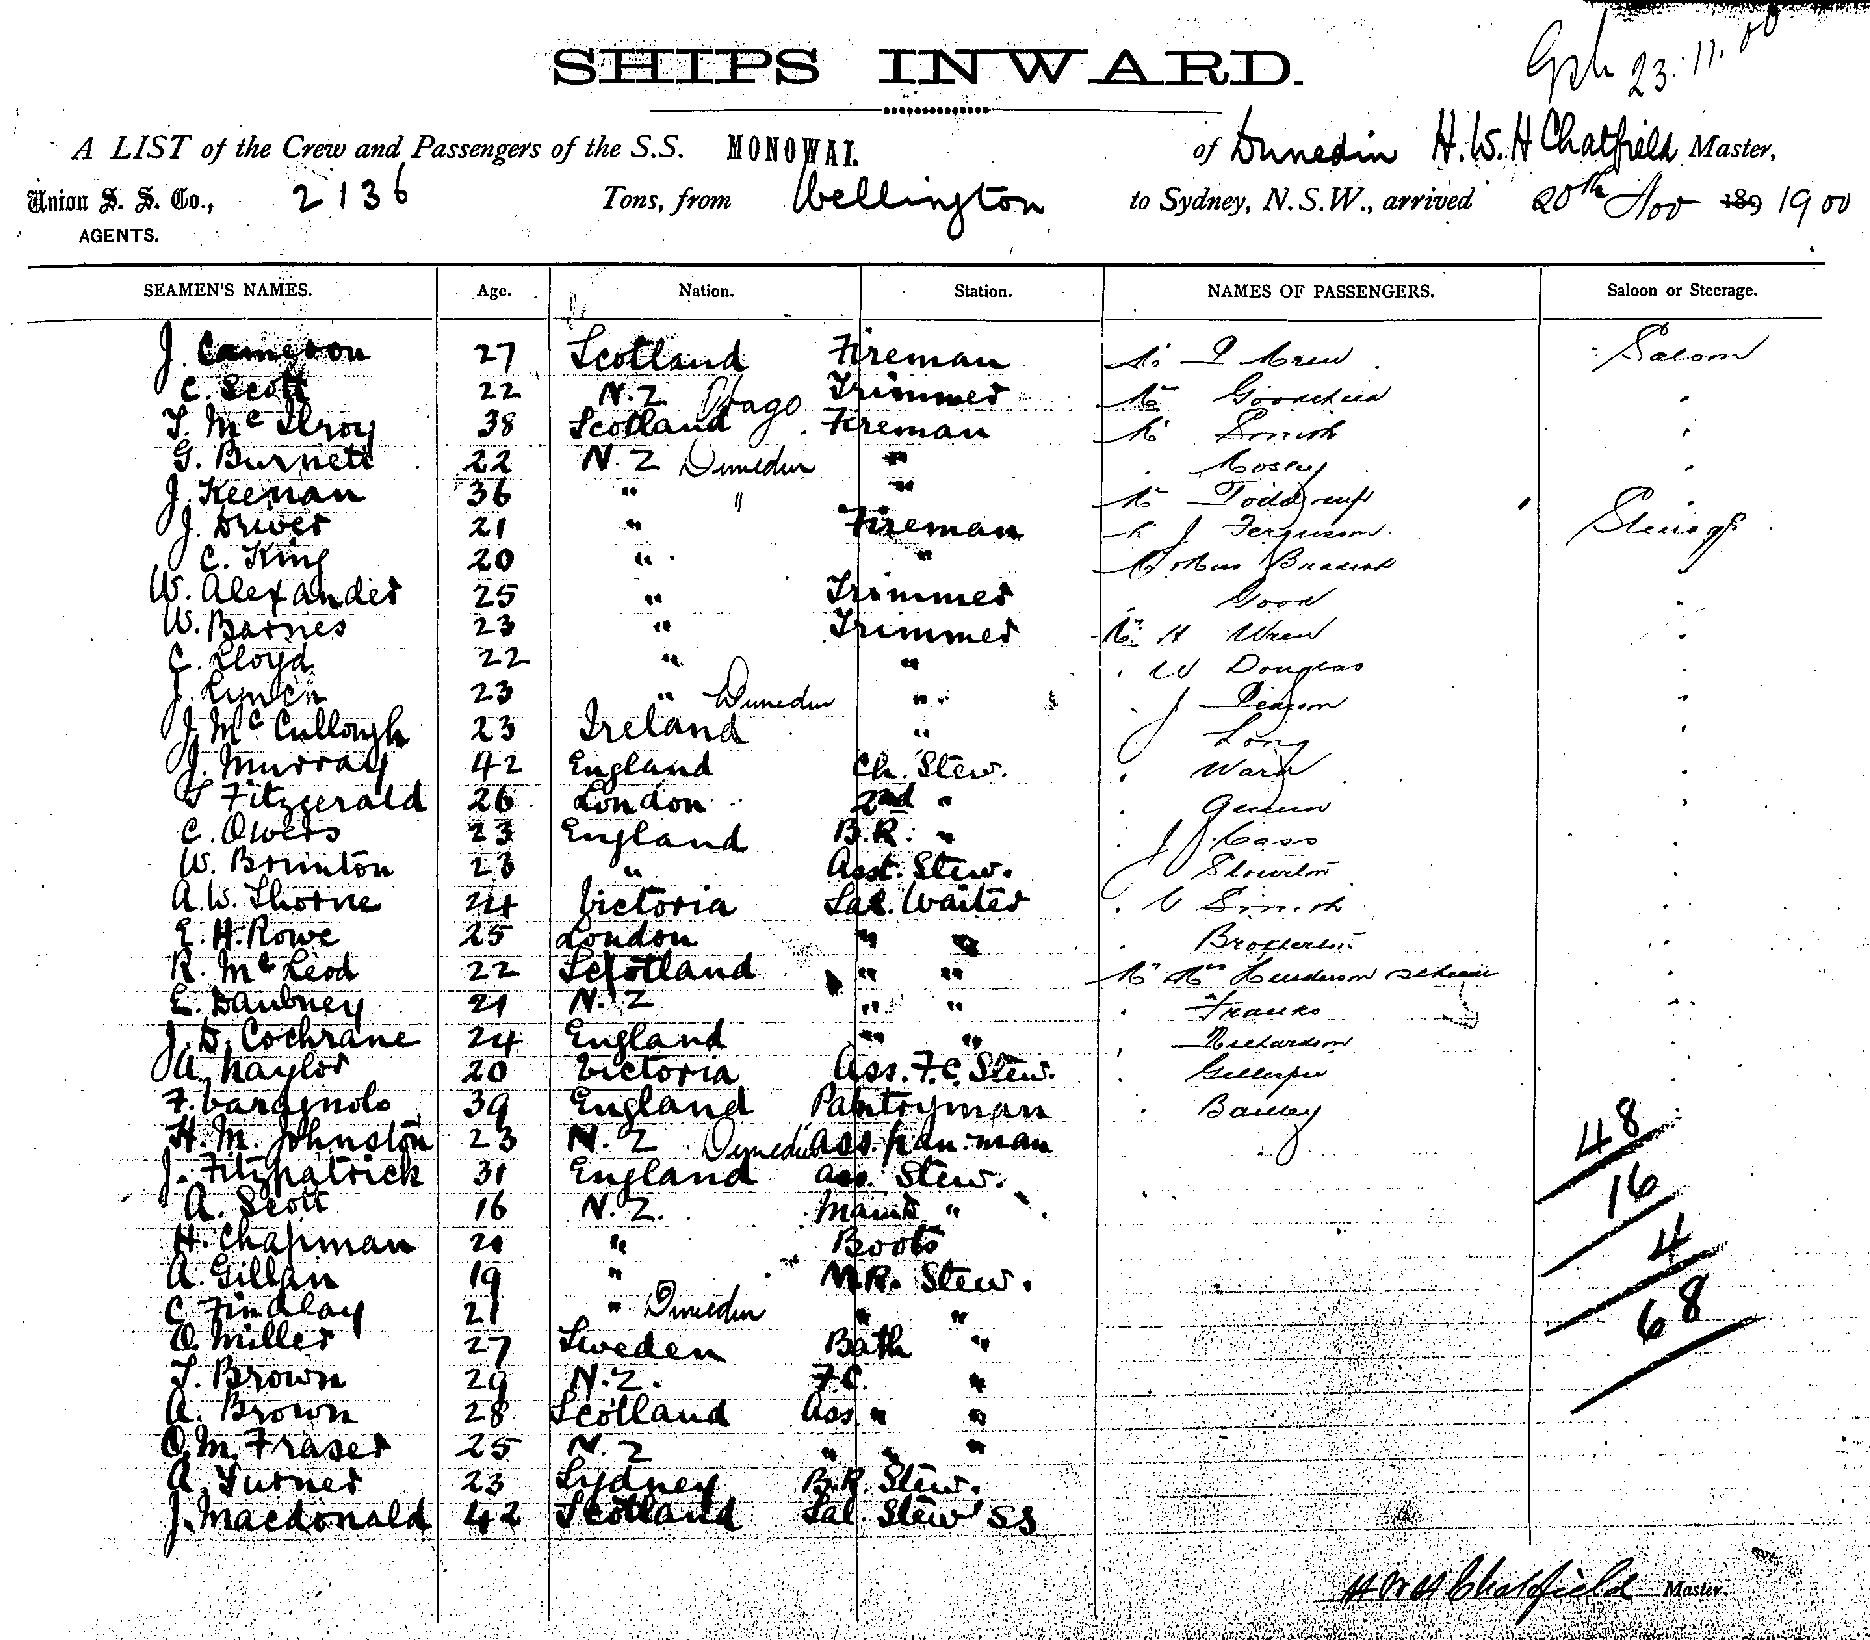 23.11.00
SHIPS INWARD.
A LIST of the Crew and Passengers of the S.S. MONOWAI. of Dunedin H.W.H Chatfield Master,
Union S. S. Co., 2136 Tons, from Wellington to Sydney, N.S.W., arrived 20th Nov 189 1900
AGENTS.
SEAMEN'S NAMES. Age. Nation. Station. NAMES OF PASSENGERS. Saloon or Steerage.
J. Cameron 27 Scotland Fireman Saloon
C. Scott 22 N.Z Otago Trimmer "
T. McIlroy 38 Scotland Fireman Smith "
G. Burnett 22 N.Z Dunedin " "
J. Keenan 36 " " " Todd
J. Driver 21 " Fireman J Ferguson Steerage
C. King 20 " " "
W. Alexander 25 " Trimmer Good "
W. Barnes 23 " Trimmer H Wren "
C. Lloyd 22 " " W Douglas "
J. Lynch 23 " Dunedin " J Pearson "
J. McCullough 23 Ireland " Long "
J. Murray 42 England Ch. Stew. Ward "
T Fitzgerald 26 London 2nd " "
C. Owers 23 England B.R. " J Cass
W. Brunton 23 " Asst. Stew.
A.W. Thorne 24 Victoria Sal. Waiter Smith "
E. H. Rowe 25 London " " "
R. McLeod 22 Scotland " " Mr Mrs Henderson "
E. Daubney 21 N.Z " " Franks "
J. D. Cochrane 24 England " " Richardson "
A. Naylor 20 Victoria Ass. F.C. Stew. Gillespie "
F. Varagnolo 39 England Pantryman Bailey
H. M. Johnston 23 N.Z Dunedin Ass. pan. man 48
J. Fitzpatrick 31 England Ass. Stew. 16
A. Scott 16 N.Z. "
H. Chapman 20 " Boots 4
A. Gillan 19 " M.R. Stew.
C Findlay 21 " Dunedin " " 68
O. Miller 27 Sweden Bath "
T. Brown 29 N.Z. F.C. "
A. Brown 28 Scotland Ass " "
O. M. Fraser 25 N.Z " " "
A. Turner 23 Sydney B.R. Stew.
J. Macdonald 42 Scotland Sal. Stew'ss
H W H Chatfield Master.